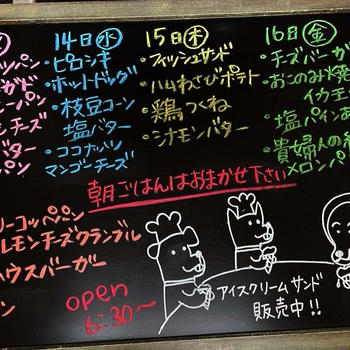 14日(水)
・ピロシキ
・ホットドッグ
・枝豆コーン
塩バター
・ココナッツ
マンゴーチーズ
15日(木)
・フィッシュサンド
・ハムわさびポテト
・鶏つくね
・シナモンバター
16日(金)
・チーズバーガ
・おこのみ焼
イカモ
・塩パインあ
・貴婦人の
メロンパ
朝ごはんはおまかせ下さい
リーコッペパン
レモンチーズクランブル
ハウスバーガー
ン
open
6:30〜
アイスクリームサンド
販売中!!